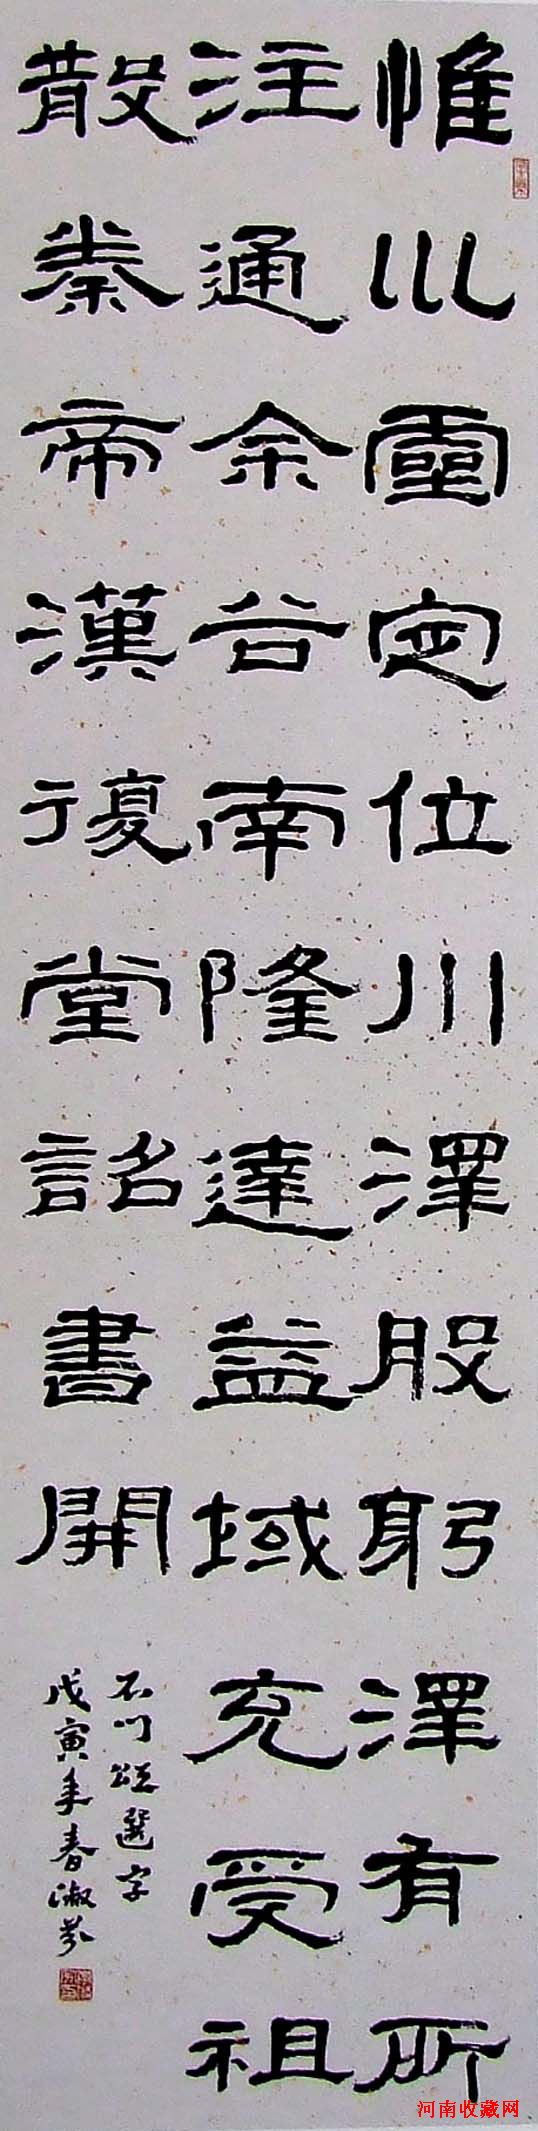 惟巛靈定位川澤股躬澤有所
注通余谷南隆達益域充受祖
散秦帝漢復堂詔書開
石门颂選字
戊寅年春淑芬
河南收藏网